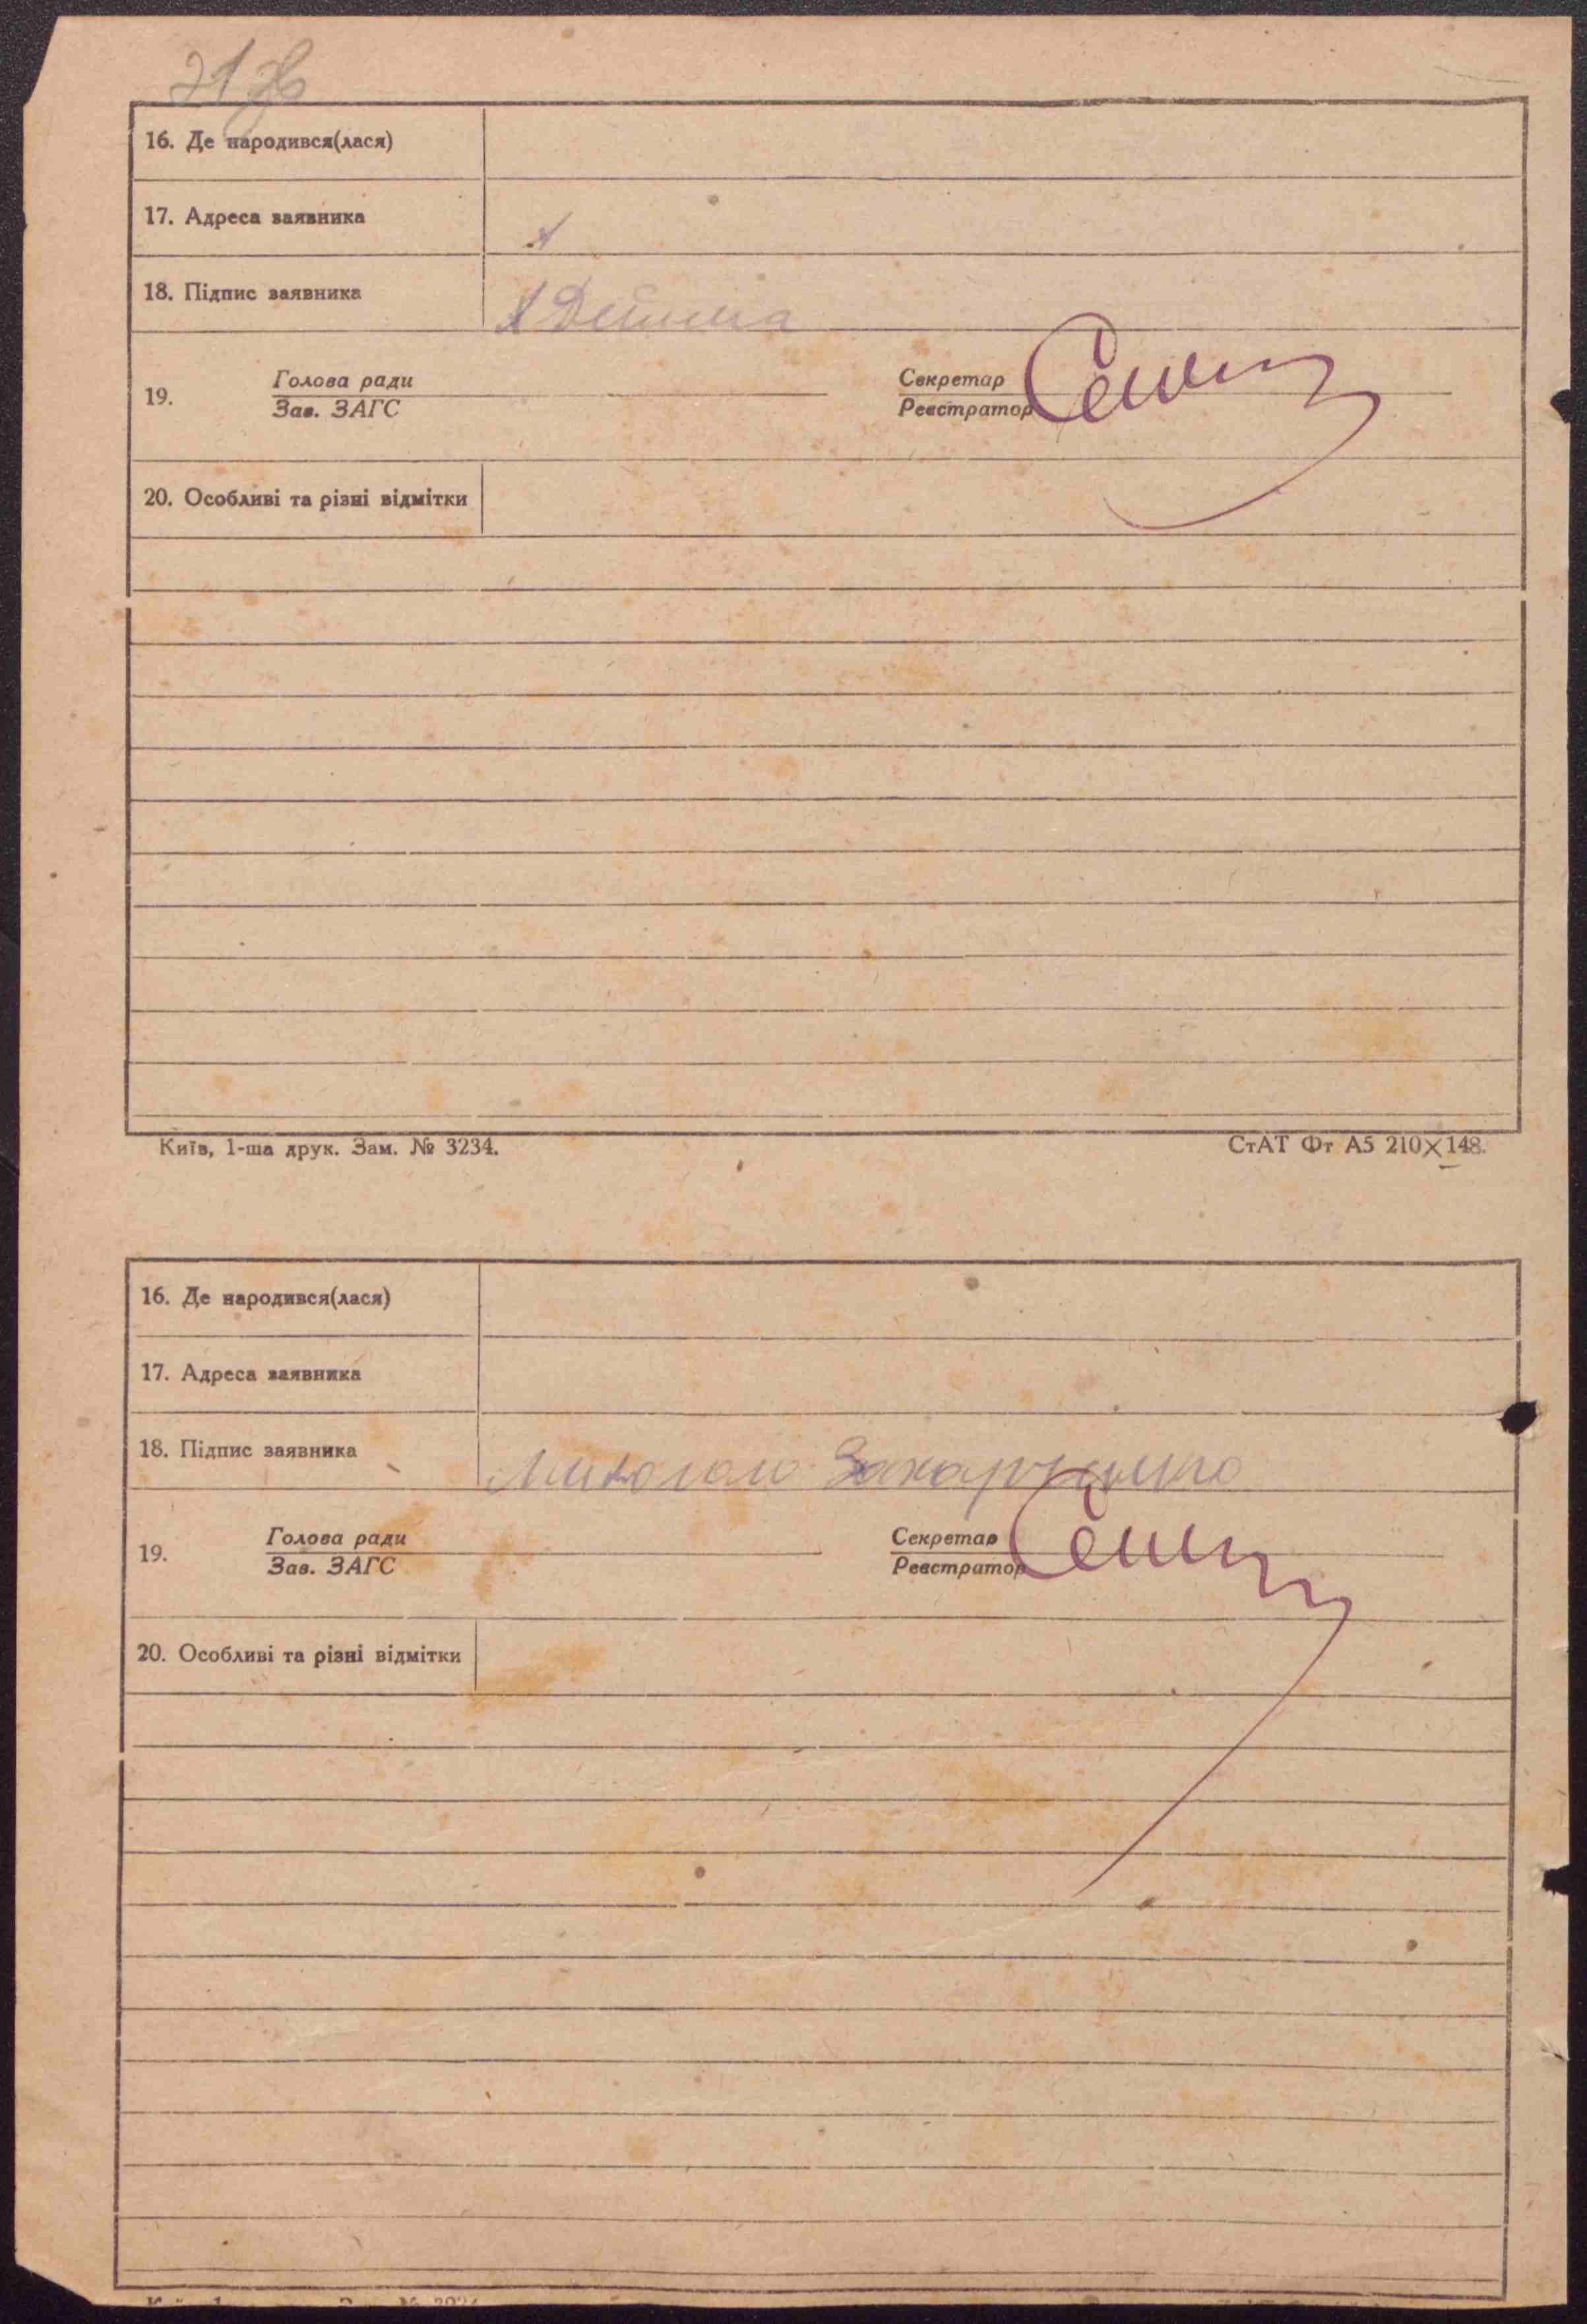 16. Де народився(лася)
17. Адреса заявника
18. Підпис заявника
19. Голова ради Секретар
Зав. ЗАГС Реєстратор
20. Особливі та різні відмітки
Київ, 1-ша друк. Зам. № 3234. СтАТ Фт А5 210×148.
16. Де народився(лася)
17. Адреса заявника
18. Підпис заявника
19. Голова ради Секретар
Зав. ЗАГС Реєстратор
20. Особливі та різні відмітки